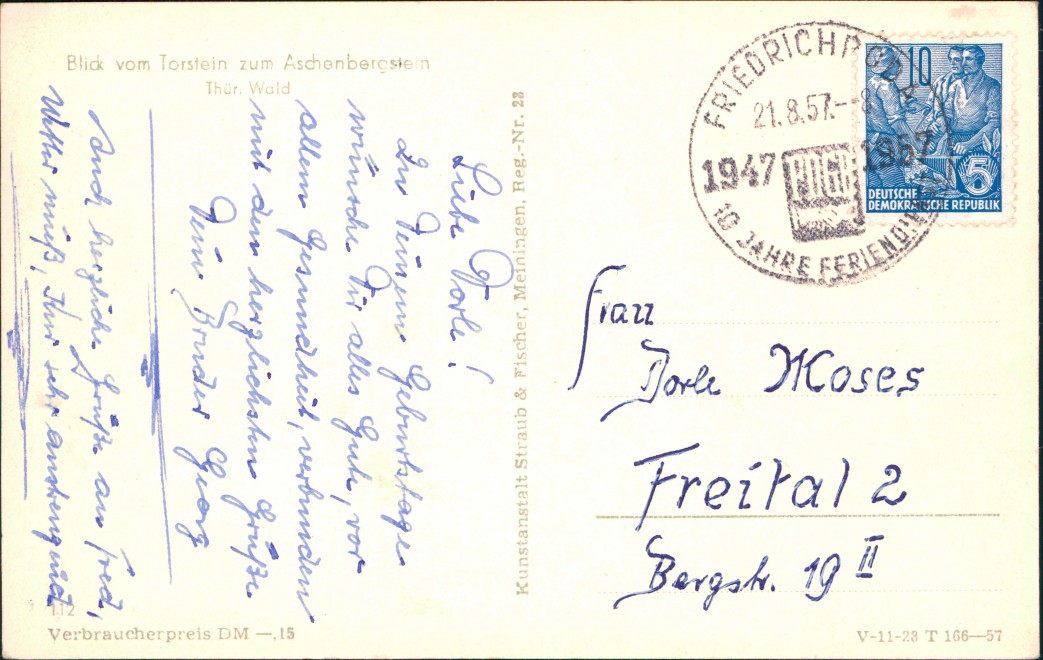 Blick vom Torstein zum Aschenbergstein
Thür. Wald
Liebe Dorle!
Zu Deinem Geburtstage
wünsche Dir alles Gute, vor
allem Gesundheit, verbunden
mit den herzlichsten Grüßen
Dein Bruder Georg
Auch herzliche Grüße an Fred,
Wetter muß, Ihm sehr anstrengend
Kunstanstalt Straub & Fischer, Meiningen, Reg.-Nr. 23
FRIEDRICHROD
21.8.57.--8
1947 FDGB 1957
10 JAHRE FERIENDI
10
5
DEUTSCHE
DEMOKRATISCHE REPUBLIK
Frau
Dorle Moses
Freital 2
Bergstr. 19 II
112
Verbraucherpreis DM —.15
V-11-23 T 166—57